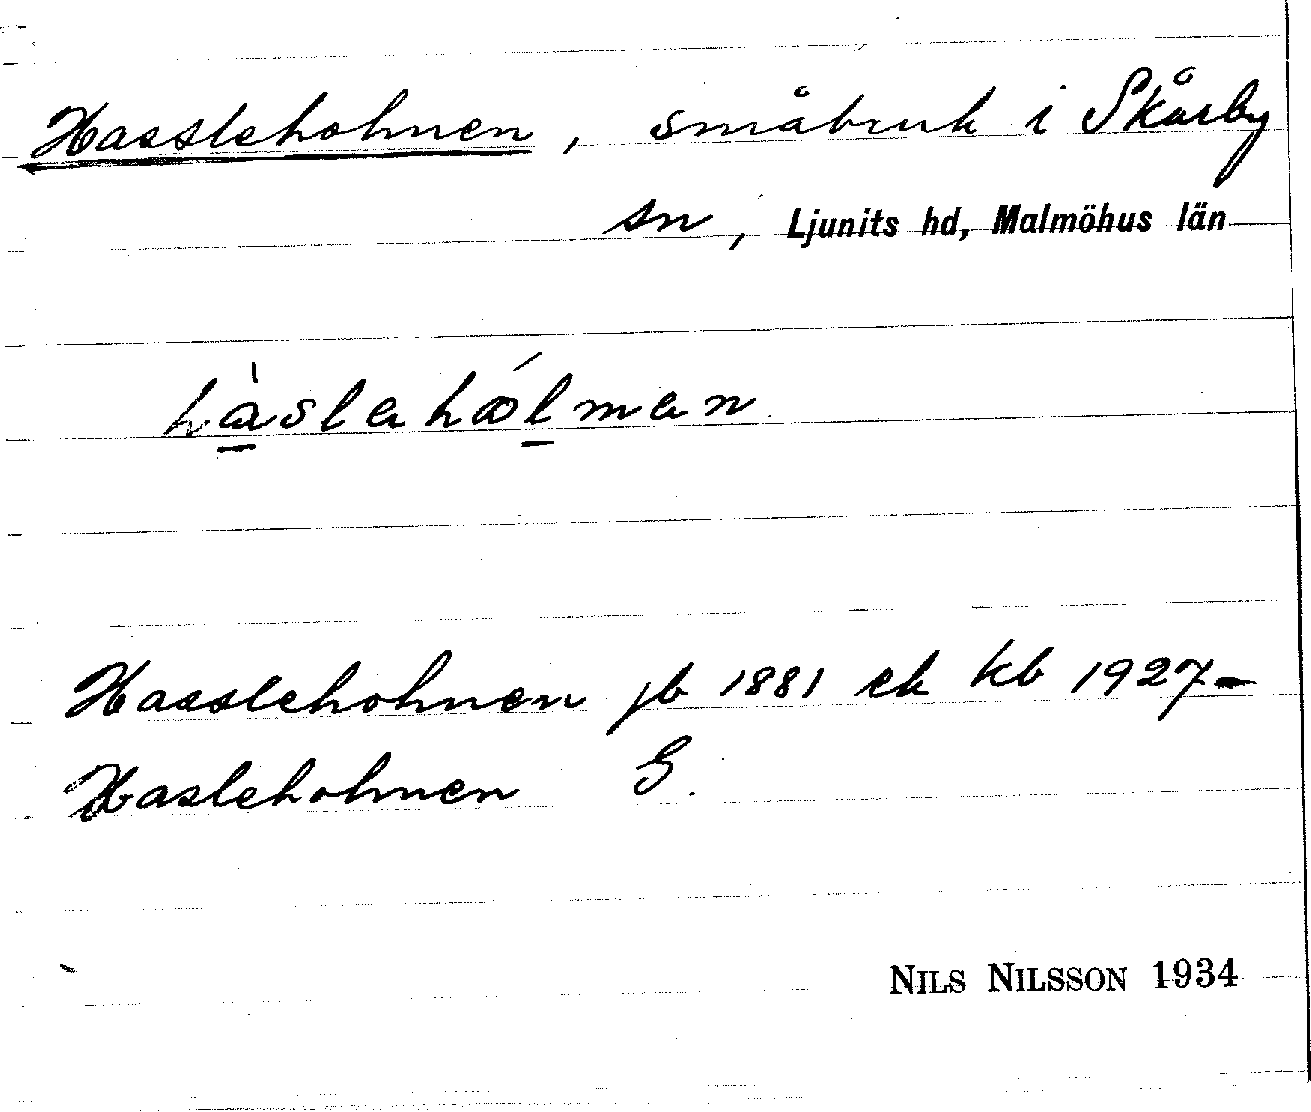 Hassleholmen, småbruk i Skårby
sn, Ljunits hd, Malmöhus län
hàslahólman
Hassleholmen jb 1881 ek kb 1927-
Hasleholmen G.
NILS NILSSON 1934